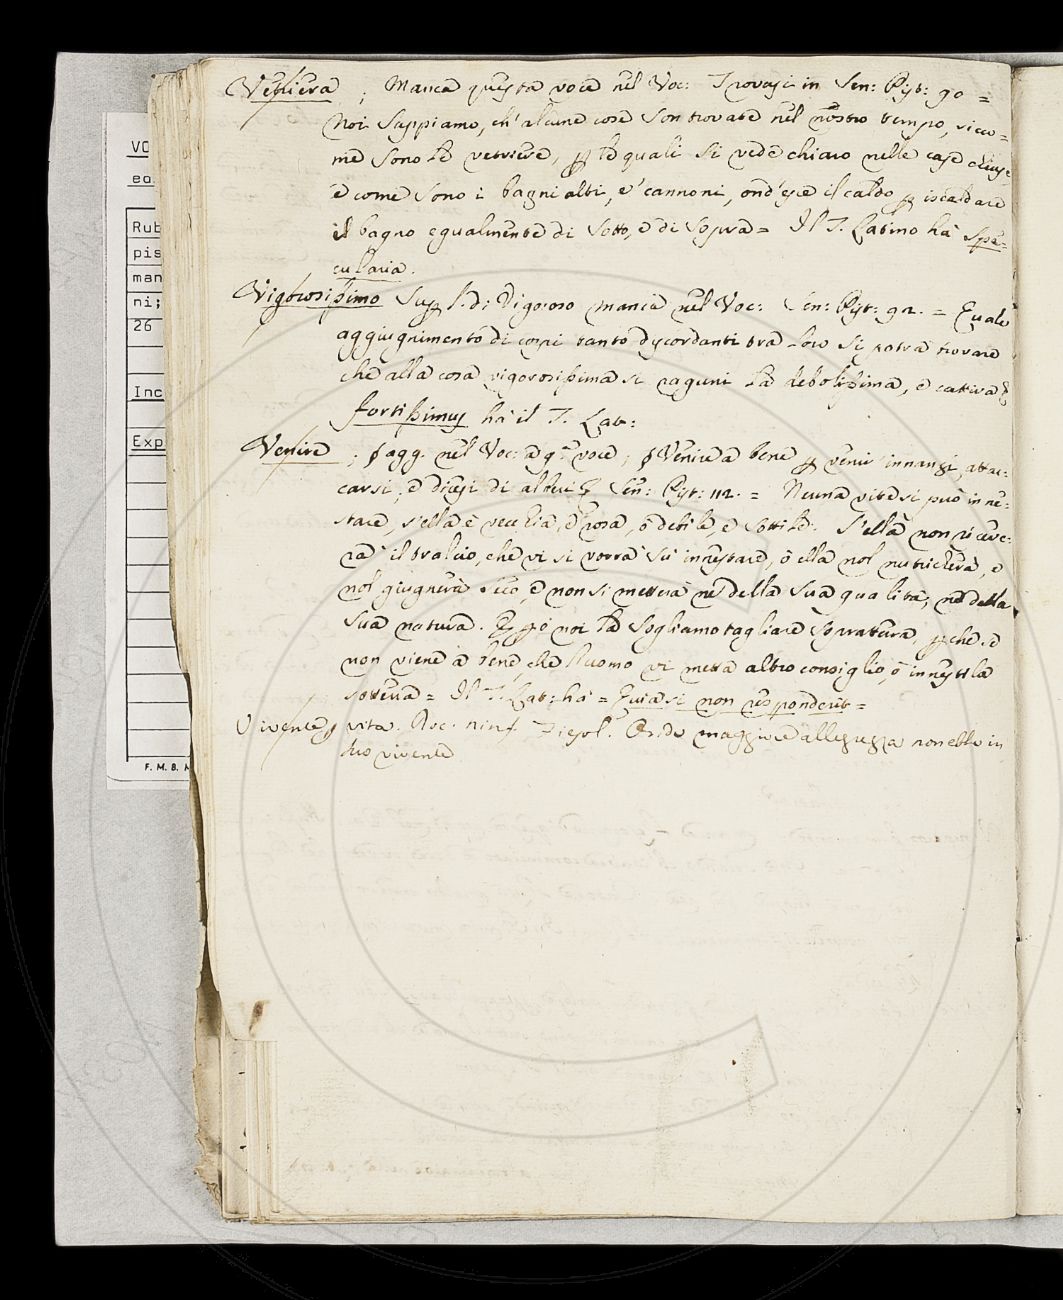 Vetriera ; Manca questa voce nel Voc: Trovasi in Sen: Pist: 90 =
Noi Sappiamo, ch'alcune cose Son trovate nel nostro tempo, sicco=
me Sono le vetriere, p le quali si vede chiaro nelle case chiuse,
e come Sono i bagni alti, e' cannoni, ond'esce il caldo p iscaldare
il bagno egualmente di Sotto, e di Sopra = Il T. Latino ha Spe=
cularia.
Vigorosissimo Sup. di Vigoroso manca nel Voc: Sen: Pist: 92. = Quale
aggiugnimento di corpi tanto discordanti tra loro si potrà trovare
che alla cosa vigorosissima si raguni la debolissima, e cattiva
fortissimus ha il T. Lat:
Venire ; agg. nel Voc: a q.a voce, Venire a bene p venir innanzi, attac=
carsi, e dicesi di alberi Sen: Pist: 112. = Neuna vite si può inne=
stare, s'ella è vecchia, e rosa, o debile, e Sottile. S'ella non riceve=
rà il tralcio, che vi si vorrà Su innestare, o ella nol nutricherà, e
nol giugnerà Seco, e non si metterà nè della Sua qualità, nè della
Sua natura. E però noi la Sogliamo tagliare Sopraterra, p che. e
non viene a bene, che l'uomo vi metta altro consiglio, o innestila
Sotterra = Il T. Lat: ha = Quia si non responderit =
Vivente p vita. Boc. ninf. Fiesol. Onde maggiore allegrezza non ebbe in
suo vivente
VO
ea
Rub
pis
man
ni;
26
Inc
Exp
F. M. B. M